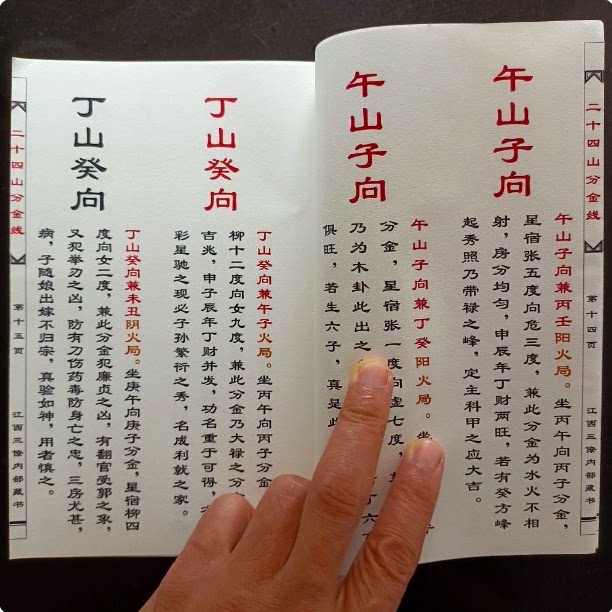 二十四山分金线 第十四页 江西三僚内部藏书
午山子向
午山子向兼丙壬阳火局。坐丙午向丙子分金，
星宿张五度向危三度，兼此分金为水火不相
射，房分均匀，申辰年丁财两旺，若有癸方峰
起秀照乃带禄之峰，定主科甲之应大吉。
午山子向
午山子向兼丁癸阳火局。坐
分金，星宿张一度向虚七度，
乃为木卦此出之 丁六
俱旺，若生六子，真是
丁山癸向
丁山癸向兼午子火局。坐丙午向丙子分金
柳十二度向女九度，兼此分金乃大禄之分
吉兆，申子辰年丁财并发，功名重于可得，
彩星驰之现必子孙繁衍之秀，名成利就之家。
丁山癸向
丁山癸向兼未丑阴火局。坐庚午向庚子分金，星宿柳四
度向女二度，兼此分金犯廉贞之凶，有翻官受郭之象，
又犯举刃之凶，防有刀伤药毒防身亡之忠，三房尤甚，
病，子随娘出嫁不归宗，真验如神，用者慎之。
二十四山分金线 第十五页 江西三僚内部藏书